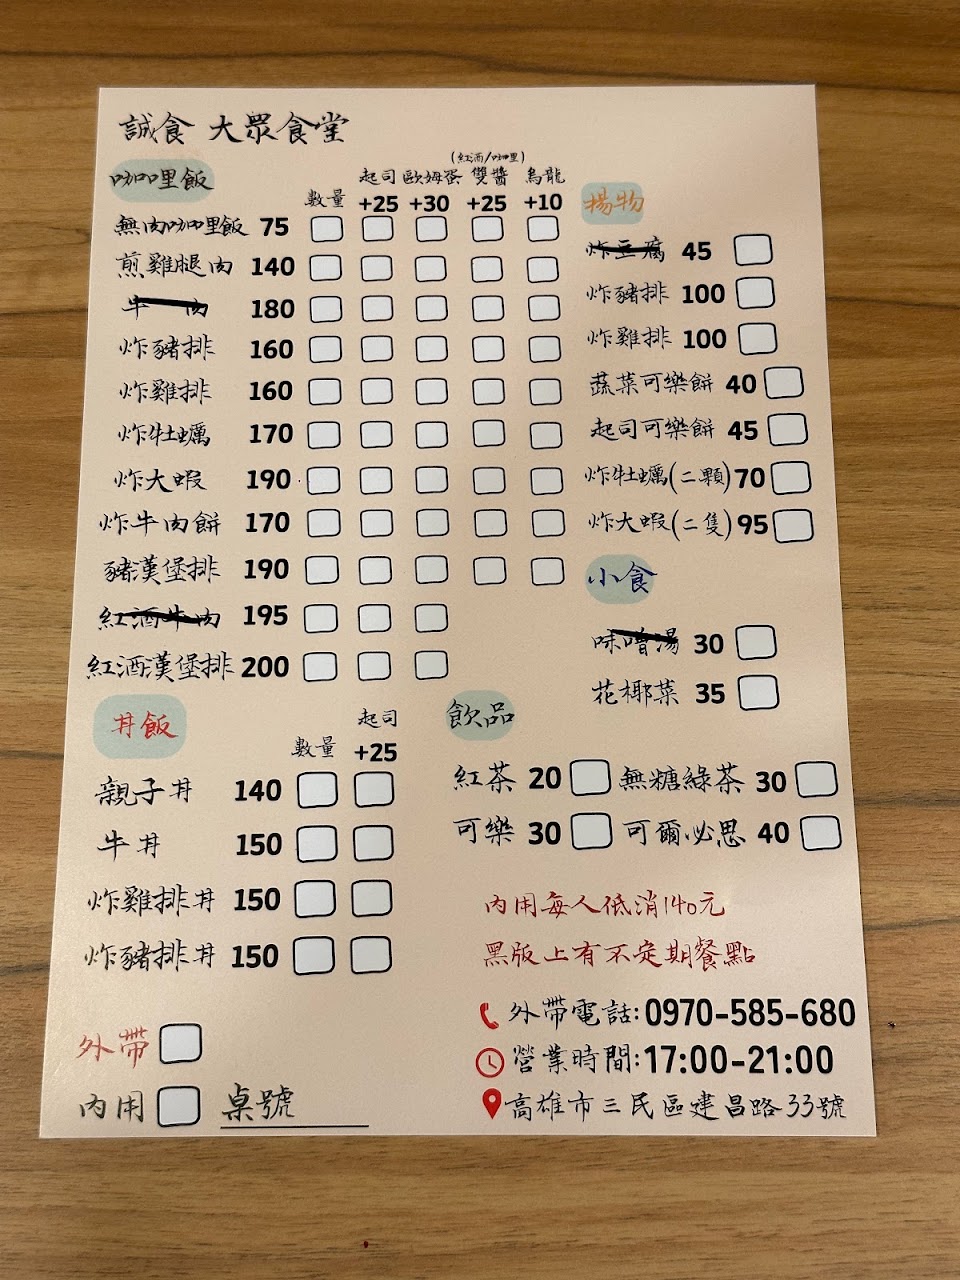 誠食 大眾食堂
咖哩飯
(紅酒/咖哩)
數量 起司 歐姆蛋 雙醬 烏龍
+25 +30 +25 +10
無肉咖哩飯 75
煎雞腿肉 140
牛肉 180
炸豬排 160
炸雞排 160
炸牡蠣 170
炸大蝦 190
炸牛肉餅 170
豬漢堡排 190
紅酒牛肉 195
紅酒漢堡排 200
丼飯
數量 起司
+25
親子丼 140
牛丼 150
炸雞排丼 150
炸豬排丼 150
外帶
內用 桌號
揚物
炸豆腐 45
炸豬排 100
炸雞排 100
蔬菜可樂餅 40
起司可樂餅 45
炸牡蠣(二顆) 70
炸大蝦(二隻) 95
小食
味噌湯 30
花椰菜 35
飲品
紅茶 20 無糖綠茶 30
可樂 30 可爾必思 40
內用每人低消140元
黑版上有不定期餐點
外帶電話:0970-585-680
營業時間:17:00-21:00
高雄市三民區建昌路33號